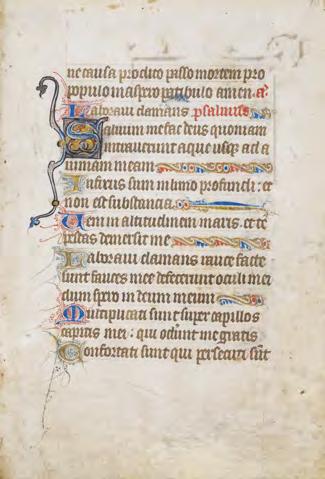 ne causa prodito passo mortem pro
populo in aspero patibulo amen. a.
Laboraui clamans psalmus
Saluum me fac deus quoniam
intrauerunt aque usqz ad a
nimam meam
Infixus sum in limo profundi: et
non est substantia.
Ueni in altitudinem maris. et te
pestas demersit me
Laboraui clamans rauce facte
sunt fauces mee defecerunt oculi mei
dum spero in deum meum
Multiplicati sunt super capillos
capitis mei: qui oderunt me gratis
Confortati sunt qui persecuti sut